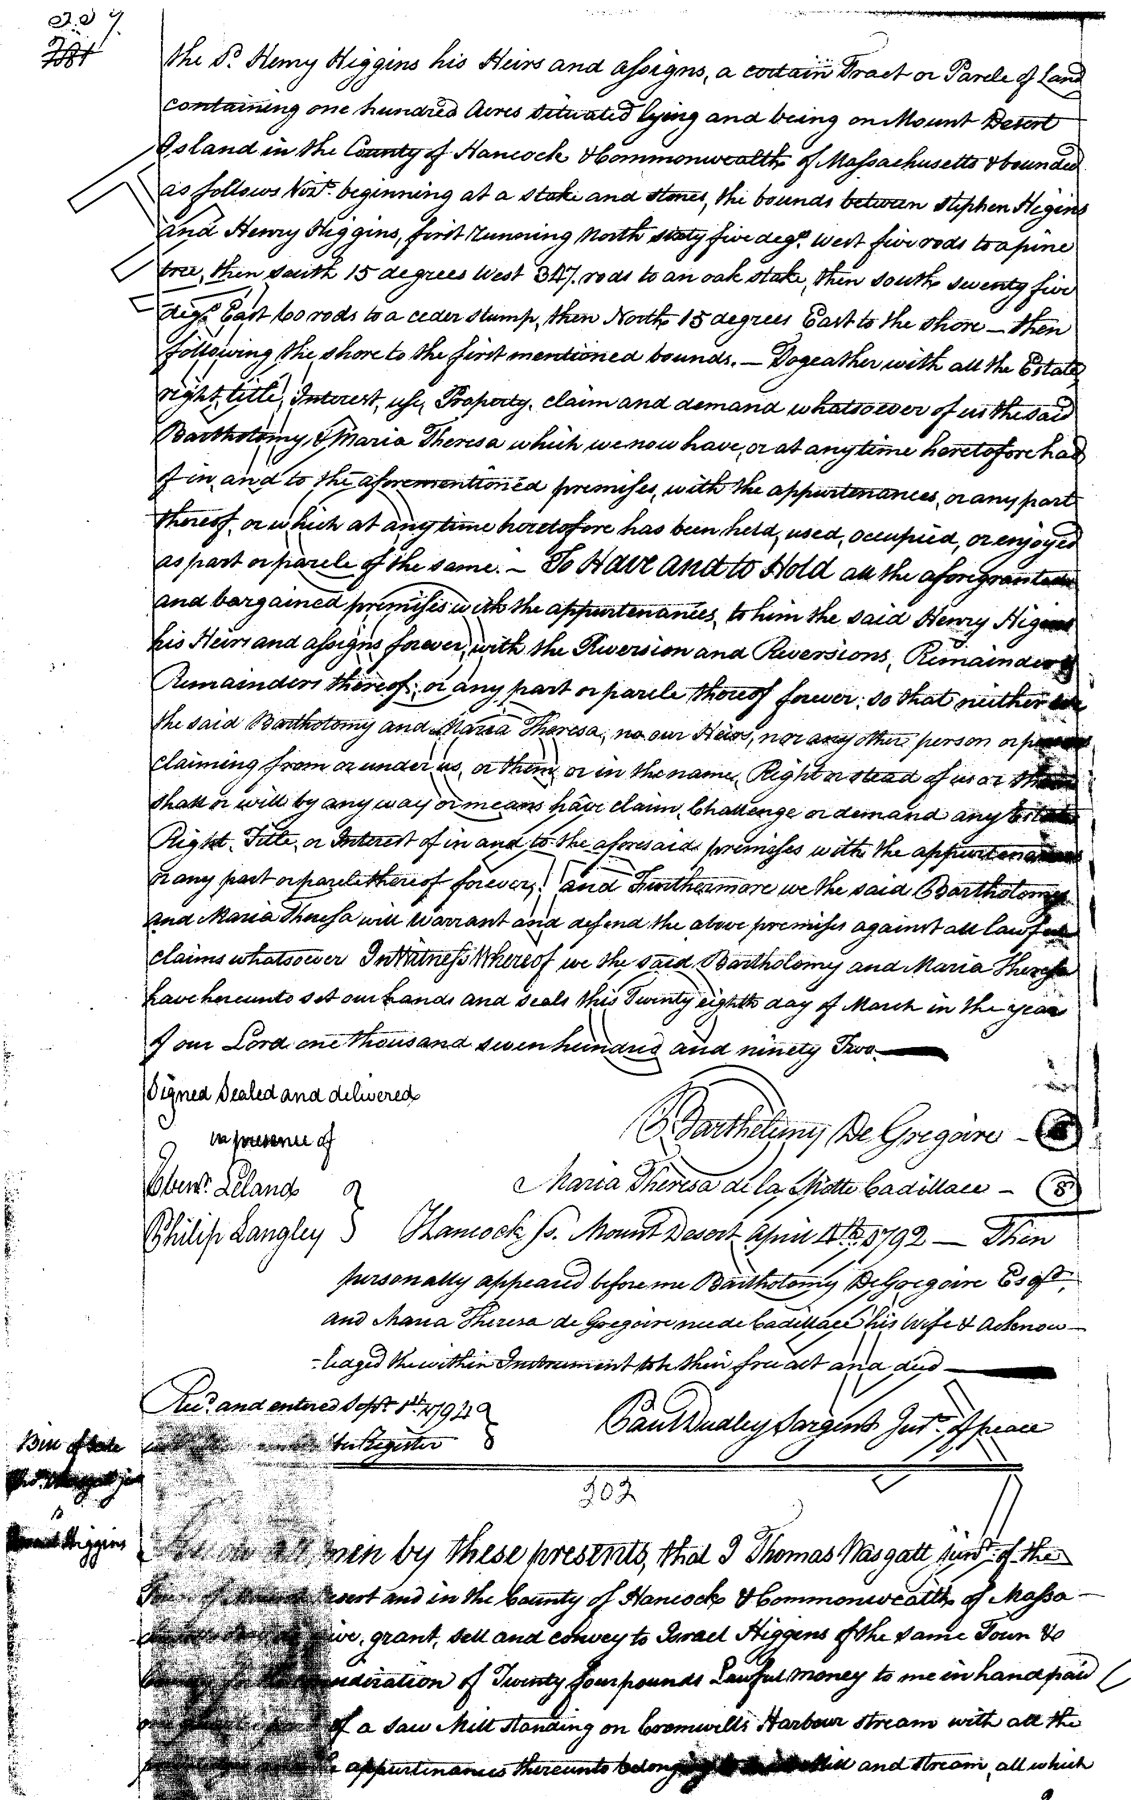 the Sd. Henry Higgins his Heirs and assigns, a certain Tract or Parcle of Land
containing one hundred Acres situated lying and being on Mount Desert
Island in the County of Hancock & Commonwealth of Massachusetts & bounded
as follows Vizt. beginning at a stake and stones, the bounds between Stephen Higins
and Henry Higgins, first running North sixty five degs. West five rods to a pine
tree, then south 15 degrees West 347. rods to an oak stake, then south seventy five
degs. East 60 rods to a ceder stump, then North 15 degrees East to the shore — then
following the shore to the first mentioned bounds. — Togeather with all the Estate,
right, title, Interest, use, Property, claim and demand whatsoever of us the said
Bartholomy & Maria Theresa which we now have, or at any time heretofore had
of in, and to the aforementioned premises, with the appurtenances, or any part
thereof, or which at any time heretofore has been held, used, occupied, or enjoyed
as part or parcle of the same. — To Have and to Hold all the aforegranted
and bargained premises with the appurtenances, to him the said Henry Higins
his Heirs and assigns forever, with the Reversion and Reversions, Remainder &
Remainders thereof, or any part or parcle thereof forever: so that neither we
the said Bartholomy and Maria Theresa, no our Heirs, nor any other person or persons
claiming from or under us, or them, or in the name, Right or stead of us or them
shall or will by any way or means have claim, Challenge or demand any Estate
Right, Title, or Interest of in and to the aforesaid premises with the appurtenances
or any part or parcle thereof forever; and Furthermore we the said Bartholomy
and Maria Theresa will warrant and defend the above premises against all lawful
claims whatsoever In Witness Whereof we the said Bartholomy and Maria Theresa
have hereunto set our hands and seals this Twenty eighth day of March in the year
of our Lord one thousand seven hundred and ninety Two.
Signed Sealed and delivered
in presence of
Bartheluny De Gregoire —
Ebenr. Leland
Maria Theresa de la Motte Cadillace — S
Philip Langley
Hancock Ss. Mount Desert April 4th. 1792 — Then
personally appeared before me Bartholomy De Gregoire Esqr.
and Maria Theresa de Gregoire nee de Cadillace his Wife & acknow-
-ledged the within Instrument to be their free act and deed
Recd. and entered Sept. 1st. 1794
Paul Dudley Sargent Just. of peace
Bill of Sale
Register
202
Higgins
Know all men by these presents, that I Thomas Wasgatt junr. of the
Town of Mount Desert and in the County of Hancock & Commonwealth of Massa-
give, grant, sell and convey to Israel Higgins of the same Town &
consideration of Twenty four pounds Lawful money to me in hand paid
of a saw Mill standing on Cromwells Harbour stream with all the
appurtinances thereunto belonging Mill and stream, all which